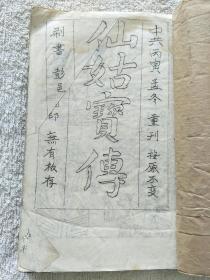 中共丙寅孟冬 重刊 按原不变
仙姑寶傳
刷書 彭邑 印 無有板存